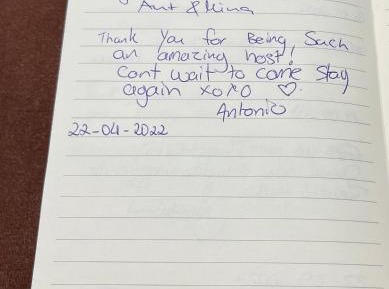 Ant & Mina
Thank you for Being Such
an amazing host!
Cant wait to come stay
again xoxo ♡.
Antonio
22-04-2022